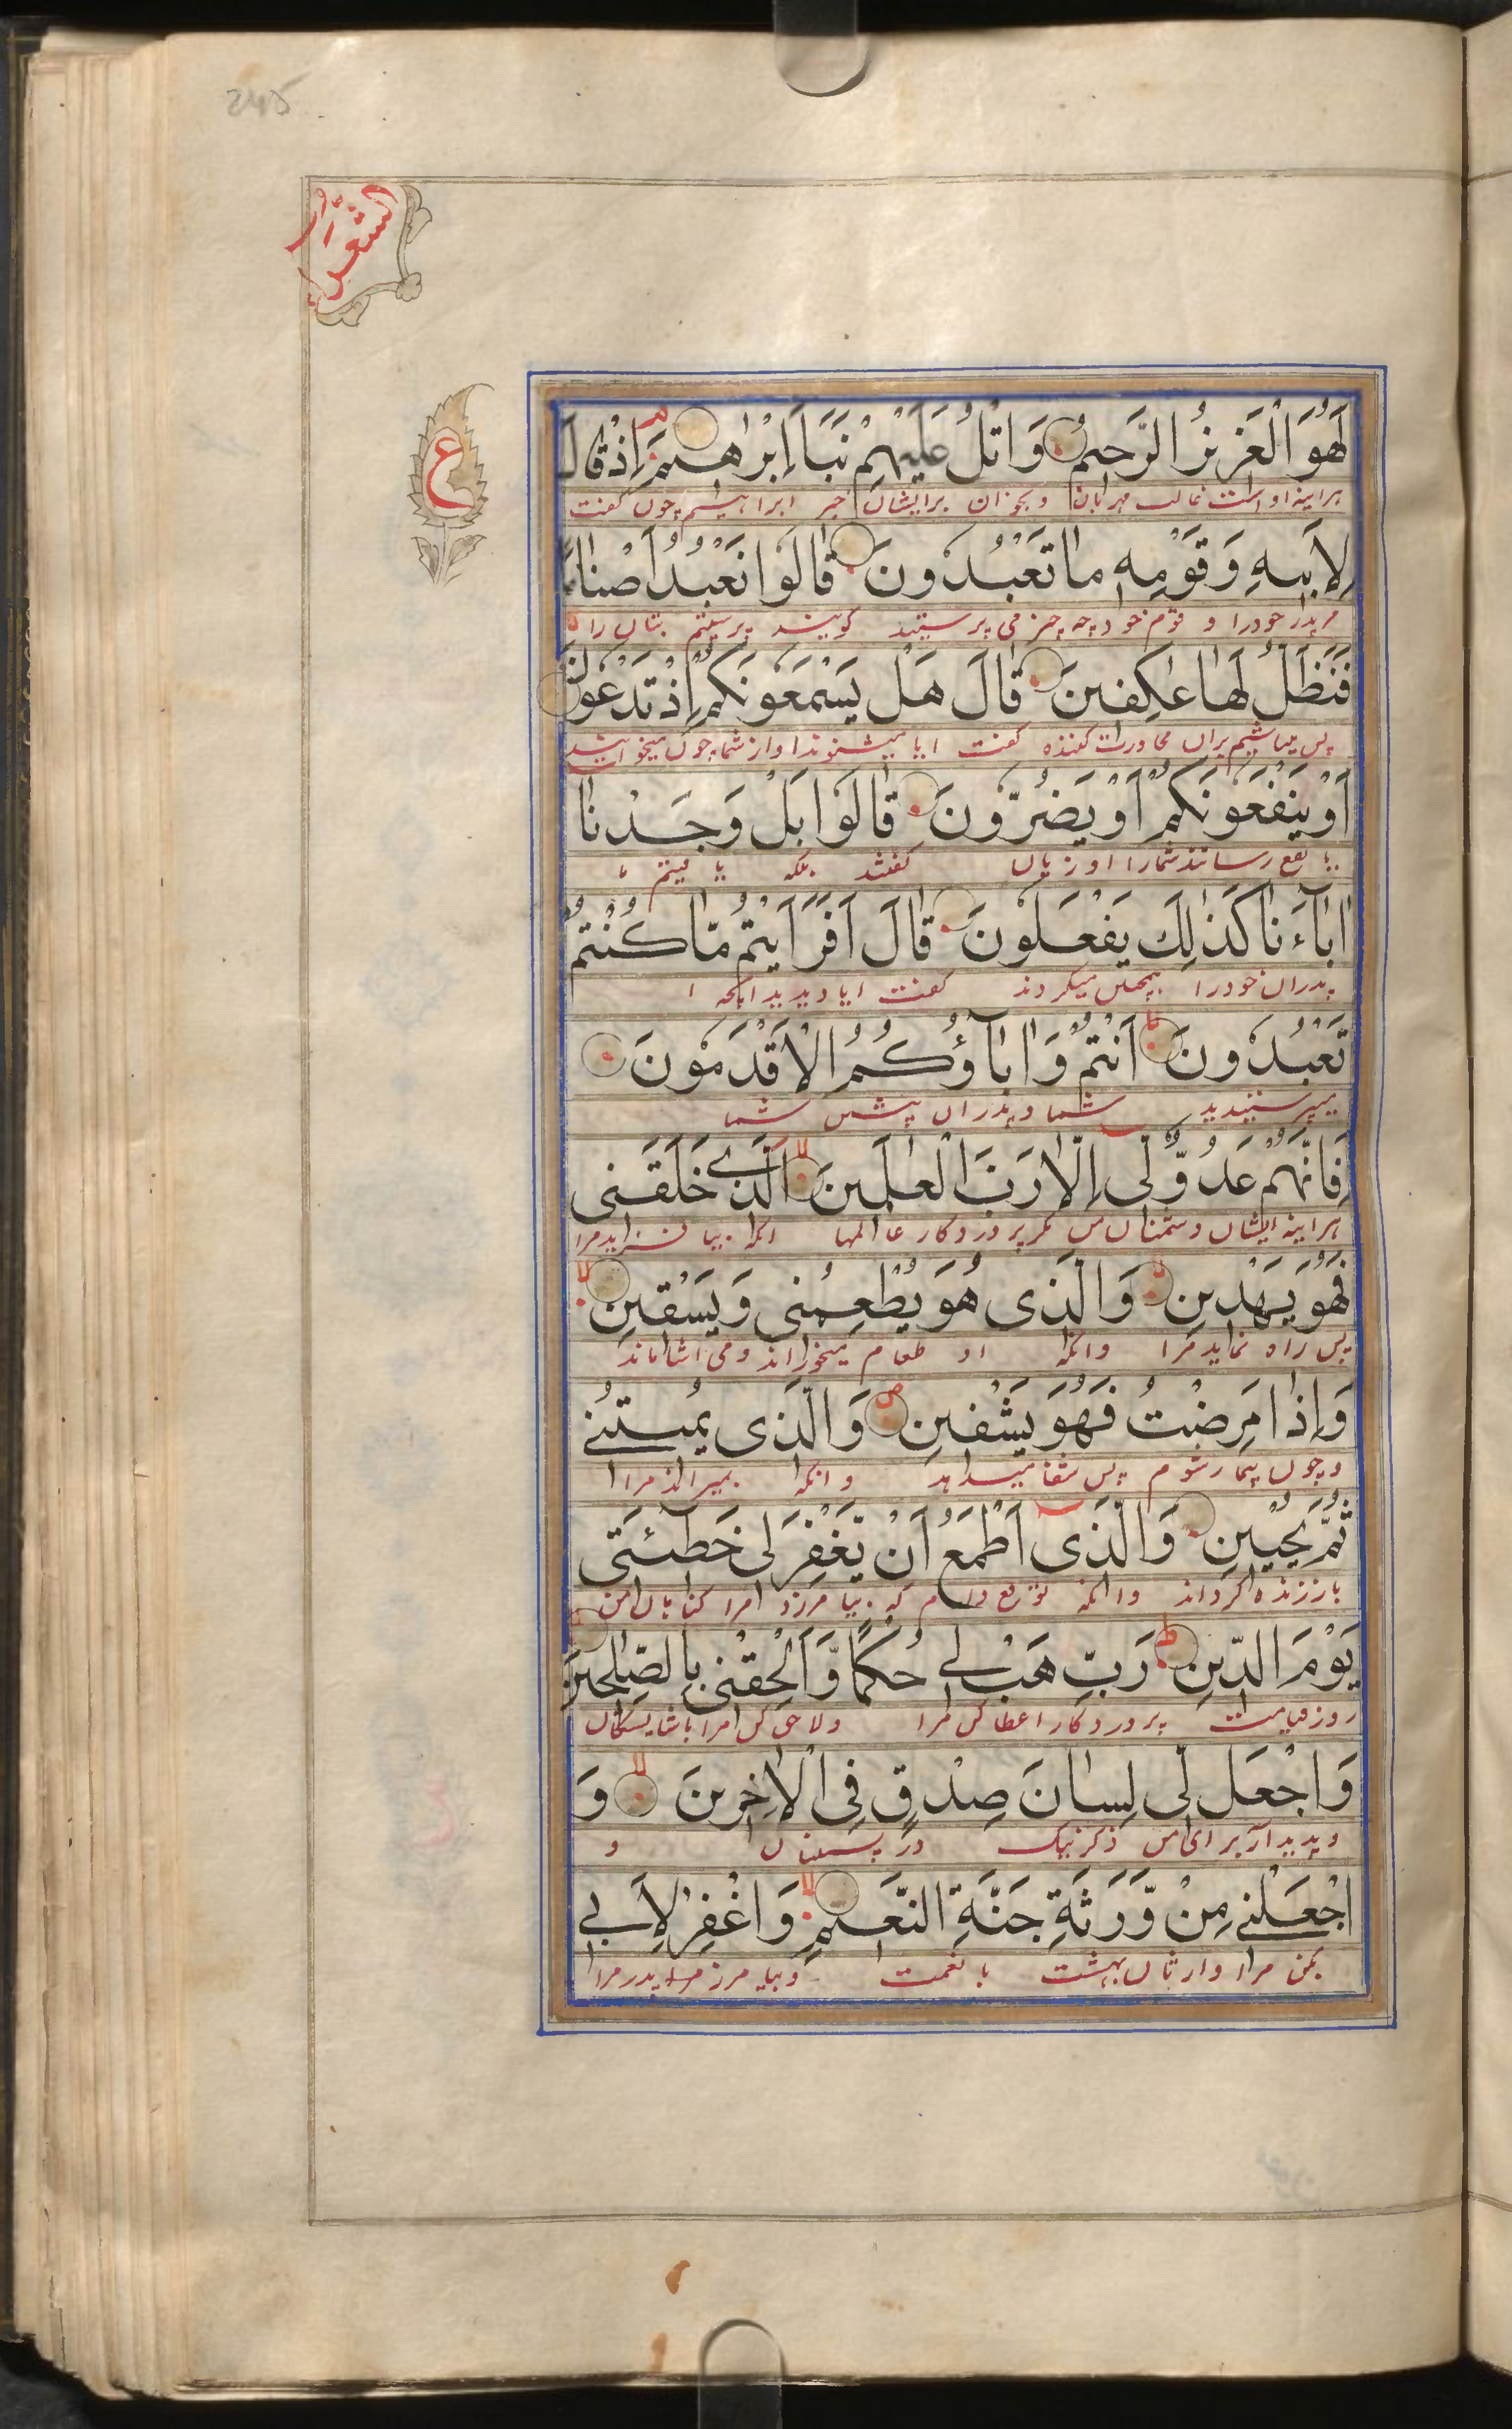 245
الشعراء
ع
لَهُوَ الْعَزِيزُ الرَّحِيمُ وَاتْلُ عَلَيْهِمْ نَبَاَ اِبْرٰهِيمَ اِذْ قَالَ
هراینه او است غالب مهربان و بخوان برایشان خبر ابراهیم چون کفت
لِاَبِيهِ وَقَوْمِهٖ مَا تَعْبُدُونَ قَالُوا نَعْبُدُ اَصْنَامًا
مر پدر خود را و قوم خود چه چیز می پرستید کویند پرستیم بتان را
فَنَظَلُّ لَهَا عٰكِفِينَ قَالَ هَلْ يَسْمَعُونَكُمْ اِذْ تَدْعُونَ
پس میباشیم بران مجاورت کننده کفت ایا میشنوند اواز شما چون میخوانید
اَوْ يَنْفَعُونَكُمْ اَوْ يَضُرُّونَ قَالُوا بَلْ وَجَدْنَا
یا نفع رسانند شمارا او زیان کفتند بلکه یافتیم ما
اٰبَآءَنَا كَذٰلِكَ يَفْعَلُونَ قَالَ اَفَرَاَيْتُمْ مَّا كُنْتُمْ
پدران خود را میکردند کفت ایا دیدید انکه
تَعْبُدُونَ اَنْتُمْ وَاٰبَآؤُكُمُ الْاَقْدَمُونَ
میپرستیدید شما و پدران پیش شما
فَاِنَّهُمْ عَدُوٌّ لِّى اِلَّا رَبَّ الْعٰلَمِينَ الَّذِى خَلَقَنِى
هراینه ایشان دشمنان من مکر پروردکار عالمها انکه بیافرید مرا
فَهُوَ يَهْدِينِ وَالَّذِى هُوَ يُطْعِمُنِى وَيَسْقِينِ
پس راه نماید مرا وانکه او طعام میخوراند و می اشاماند
وَاِذَا مَرِضْتُ فَهُوَ يَشْفِينِ وَالَّذِى يُمِيتُنِى
و چون بیمار شوم پس شفا میدهد وانکه بمیراند مرا
ثُمَّ يُحْيِينِ وَالَّذِى اَطْمَعُ اَنْ يَّغْفِرَ لِى خَطِيْٓئَتِى
باز زنده کرداند وانکه توقع دارم که بیامرزد مرا کناهان من
يَوْمَ الدِّينِ رَبِّ هَبْ لِى حُكْمًا وَّاَلْحِقْنِى بِالصّٰلِحِينَ
روز قیامت پروردکارا عطا کن مرا ولاحق کن مرا باشایستکان
وَاجْعَل لِّى لِسَانَ صِدْقٍ فِى الْاٰخِرِينَ وَ
و پدید آر برای من ذکر نیک در پسینان و
اجْعَلْنِى مِنْ وَّرَثَةِ جَنَّةِ النَّعِيمِ وَاغْفِرْ لِاَبِى
بکن مرا وارثان بهشت با نعمت و بیامرز مر پدر مرا